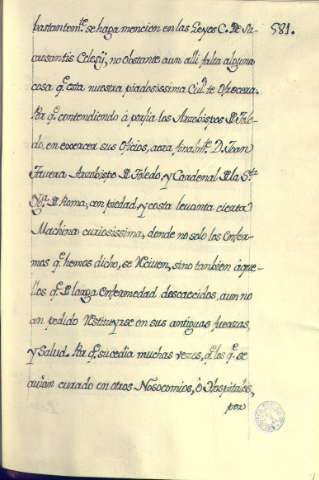 581.
bastantemte. se haga mencion en las Leyes C. De Sa-
crosantis Eclesij, no obstante aun alli falta alguna
cosa q. esta nuestra piadosissima Ciud. te Ofrecera.
Por q. contendiendo à porfia los Arzobispos D Tole-
do, en exercer sus Oficios, aora finalmte. D. Juan
Tavera Arzobispo D Toledo, y Cardenal D la Sta.
Ygla. D Roma, con piedad y costa levanta cierta
Machina curiosissima, donde no solo los Enfer-
mos q. hemos dicho, se Reciven, sino tambien aque-
llos q. D larga Enfermedad descaecidos, aun no
an podido Restituyrse en sus antiguas fuerzas,
y Salud. Por q. sucedia muchas vezes, q. los q. se
auian curado en otros Nosocomios, ò Ospitales,
por